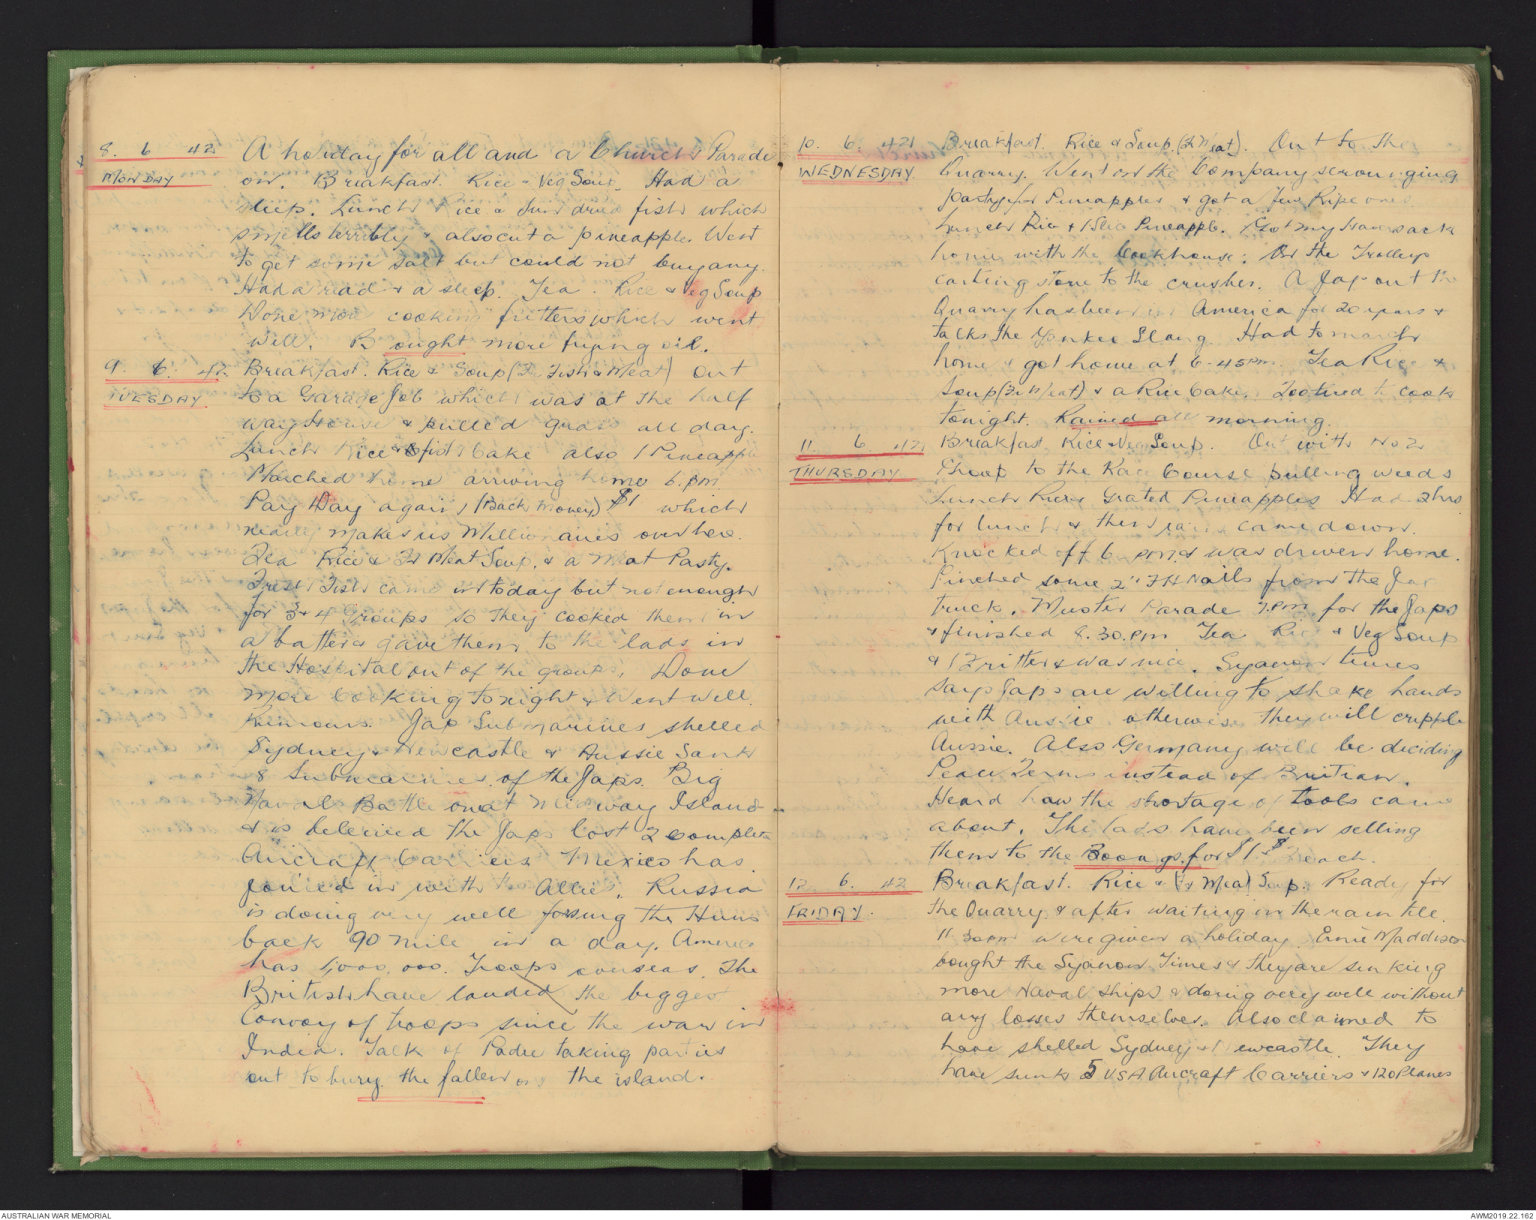 8. 6 42
MONDAY
A holiday for all and a Church Parade
on. Breakfast. Rice & Veg Soup. Had a
sleep. Lunch Rice & Sun dried fish which
smells terribly & also cut a pineapple. Went
to get some salt but could not buy any.
Had a read & a sleep. Tea. Rice & Veg Soup
Done more cooking fritters which went
well. Bought more frying oil.
9. 6. 42
TUESDAY
Breakfast. Rice & Soup (Fish & Meat) Out
to a Garage Job which was at the half
way House & pulled grass all day.
Lunch Rice & fish Cake also 1 Pineapple
Marched home arriving home 6. pm
Pay Day again, (Back Money) $1 which
nearly makes us Millionaires over here.
Tea Rice & Meat Soup, & a Meat Pasty.
Fresh Fish came in today but not enough
for 3 & 4 Groups so they cooked them in
a batter & gave them to the lads in
the Hospital out of the group. Done
more Cooking tonight & Went well.
Rumours. Jap Submarines shelled
Sydney & Newcastle & Aussie Sank
8 Submarines of the Japs. Big
Naval Battle on at Midway Island
& is believed the Japs lost 2 complete
Aircraft Carriers Mexico has
joined in with the Allies. Russia
is doing very well forsing the Huns
back 90 mile in a day. America
has 1,000,000. Troops overseas. The
British have landed the bigges
Convoy of troops since the war in
India. Talk of Padre taking parties
out to bury the fallen on the island.
10. 6. 42
WEDNESDAY
Breakfast. Rice & Soup. (Meat). Out to the
Quarry. Went on the Company scrounging
party for Pineapples & got a few Ripe ones
Lunch Rice & 1 Slice Pineapple. Got my Haversack
home with the Cookhouse. On the Trolleys
carting stone to the crusher. A Jap out the
Quarry has been in America for 20 years &
talks the Yankee Slang. Had to march
home & got home at 6-45 pm. Tea Rice &
Soup (Meat) & a Rice Cake. to cook
tonight. Rained all morning.
11. 6. 42
THURSDAY
Breakfast. Rice & Veg Soup. Out with No 2
Group to the Race Course pulling weeds
Lunch Rice & Grated Pineapples Had 2 hrs
for lunch & then rain came down.
Knocked off 6 pm & was driven home.
Pinched some 2" Nails from the Jap
truck. Muster Parade 7. pm for the Japs
& finished 8.30. pm Tea Rice & Veg Soup
& 1 Fritter & was nice. Syanon times
says Japs are willing to shake hands
with Aussie otherwise they will cripple
Aussie. Also Germany will be deciding
Peace Terms instead of Britian.
Heard how the shortage of tools came
about. The lads have been selling
them to the Boongs for $1 each.
12. 6. 42
FRIDAY.
Breakfast. Rice & Meat Soup. Ready for
the Quarry & after waiting in the rain till
11 30 pm were given a holiday. Ernie Maddison
bought the Syanon Times & they are sinking
more Naval ships & doing very well without
any losses themselves. Also claimed to
have shelled Sydney & Newcastle. They
have sunk 5 USA Aircraft Carriers & 120 Planes
AUSTRALIAN WAR MEMORIAL
AWM2019.22.162